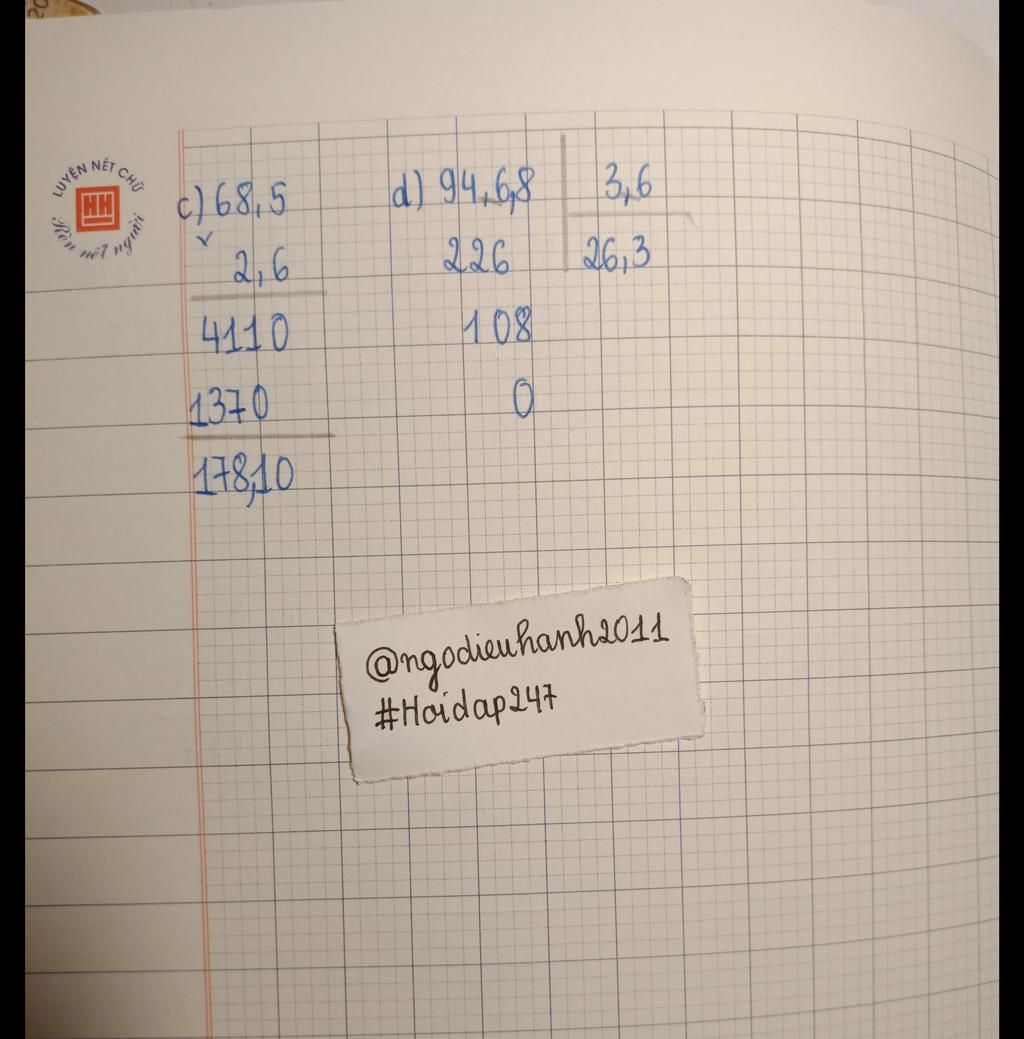 LUYỆN NÉT CHỮ
HH
Rèn nết người
c) 68,5
x
2,6
4110
1370
178,10
d) 94,6,8 3,6
226 26,3
108
0
@ngodieuhanh2011
#Hoidap247